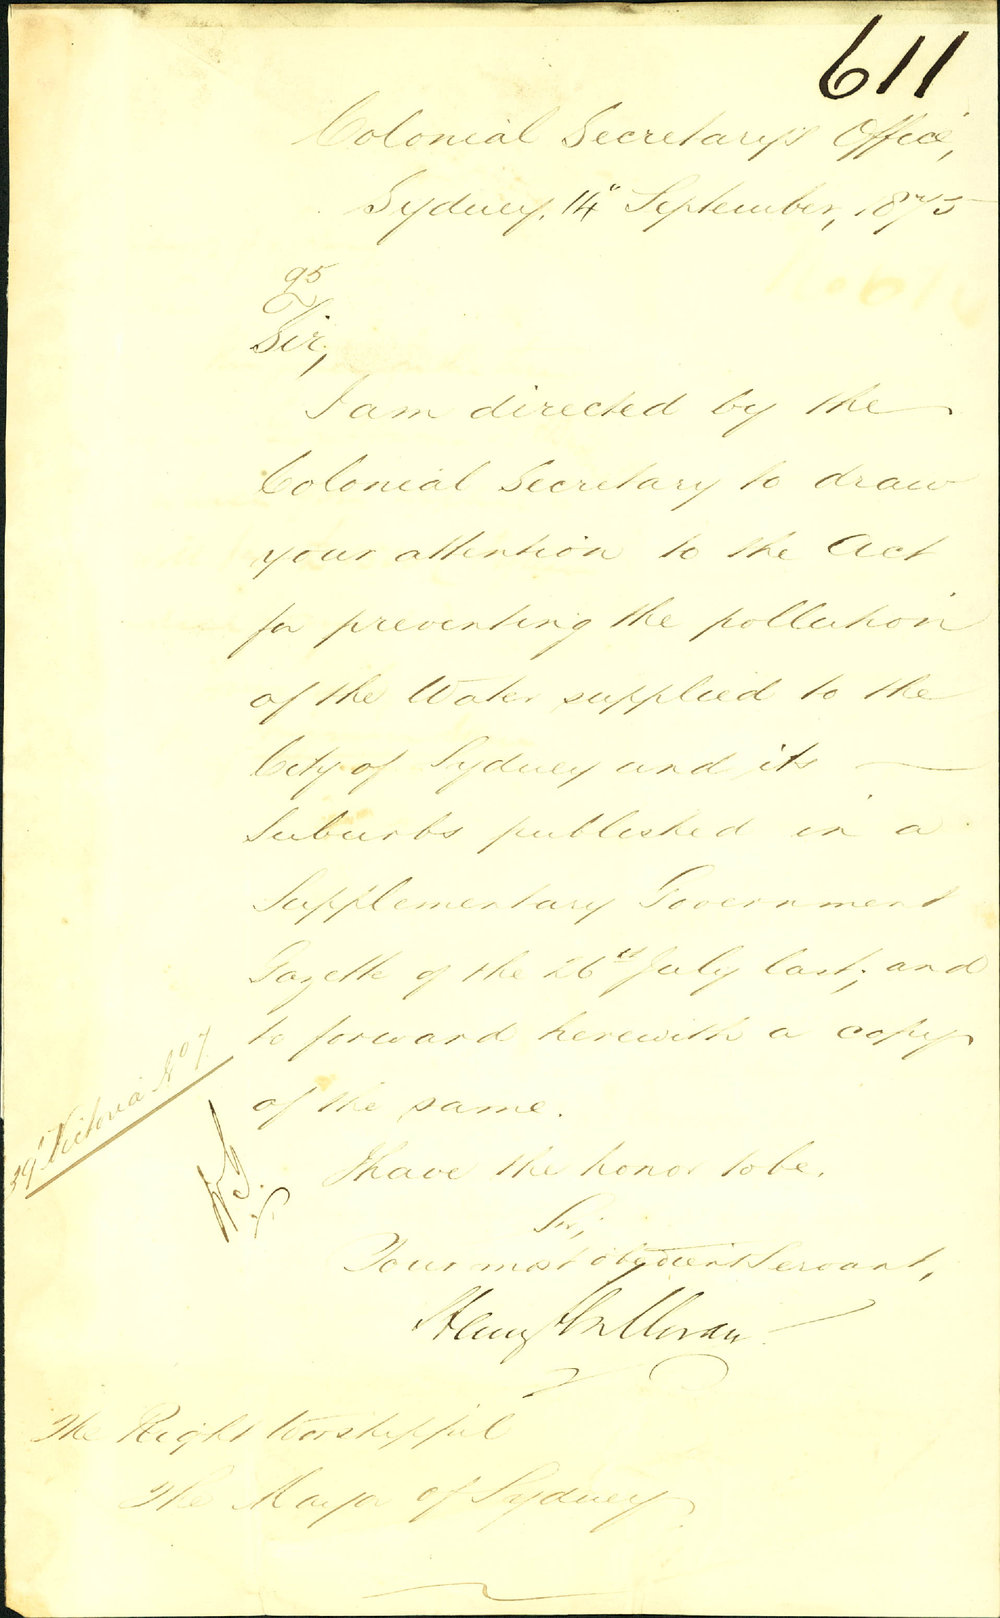 611
Colonial Secretary's Office,
Sydney, 14" September, 1875
95
Sir,
I am directed by the
Colonial Secretary to draw
your attention to the Act
for preventing the pollution
of the Water supplied to the
City of Sydney and its
Suburbs published in a
Supplementary Government
Gazette of the 26th July last; and
to forward herewith a copy
of the same.
39 Victoria No 7
I have the honor to be,
Sir,
Your most obedient Servant,
Henry Halloran
The Right Worshipful
The Mayor of Sydney